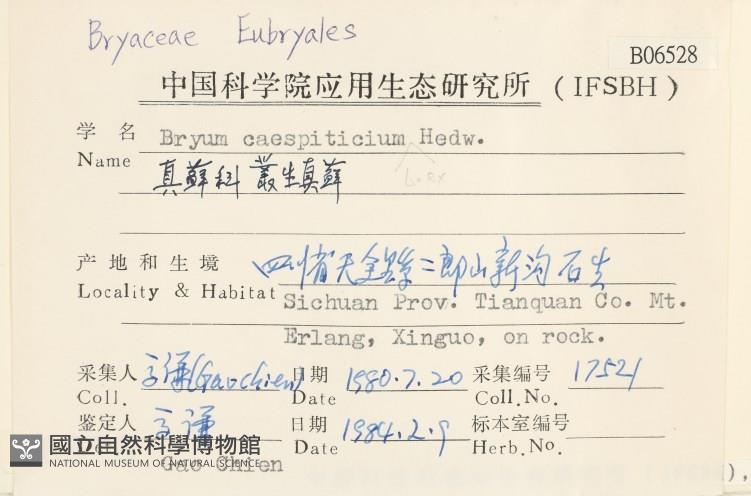 Bryaceae Eubryales
B06528
中国科学院应用生态研究所 (IFSBH)
学名 Bryum caespiticium Hedw.
Name
L. ex
真蘚科 叢生真蘚
产地和生境 四川省天全县二郎山新沟 石生
Locality & Habitat Sichuan Prov. Tianquan Co. Mt.
Erlang, Xinguo, on rock.
采集人 高谦(Gao Chien) 日期 1980.7.20 采集编号 17521
Coll. Date Coll.No.
鉴定人 高谦 日期 1984.2.9 标本室编号
Date Herb.No.
國立自然科學博物館
NATIONAL MUSEUM OF NATURAL SCIENCE
Gao Chien
),